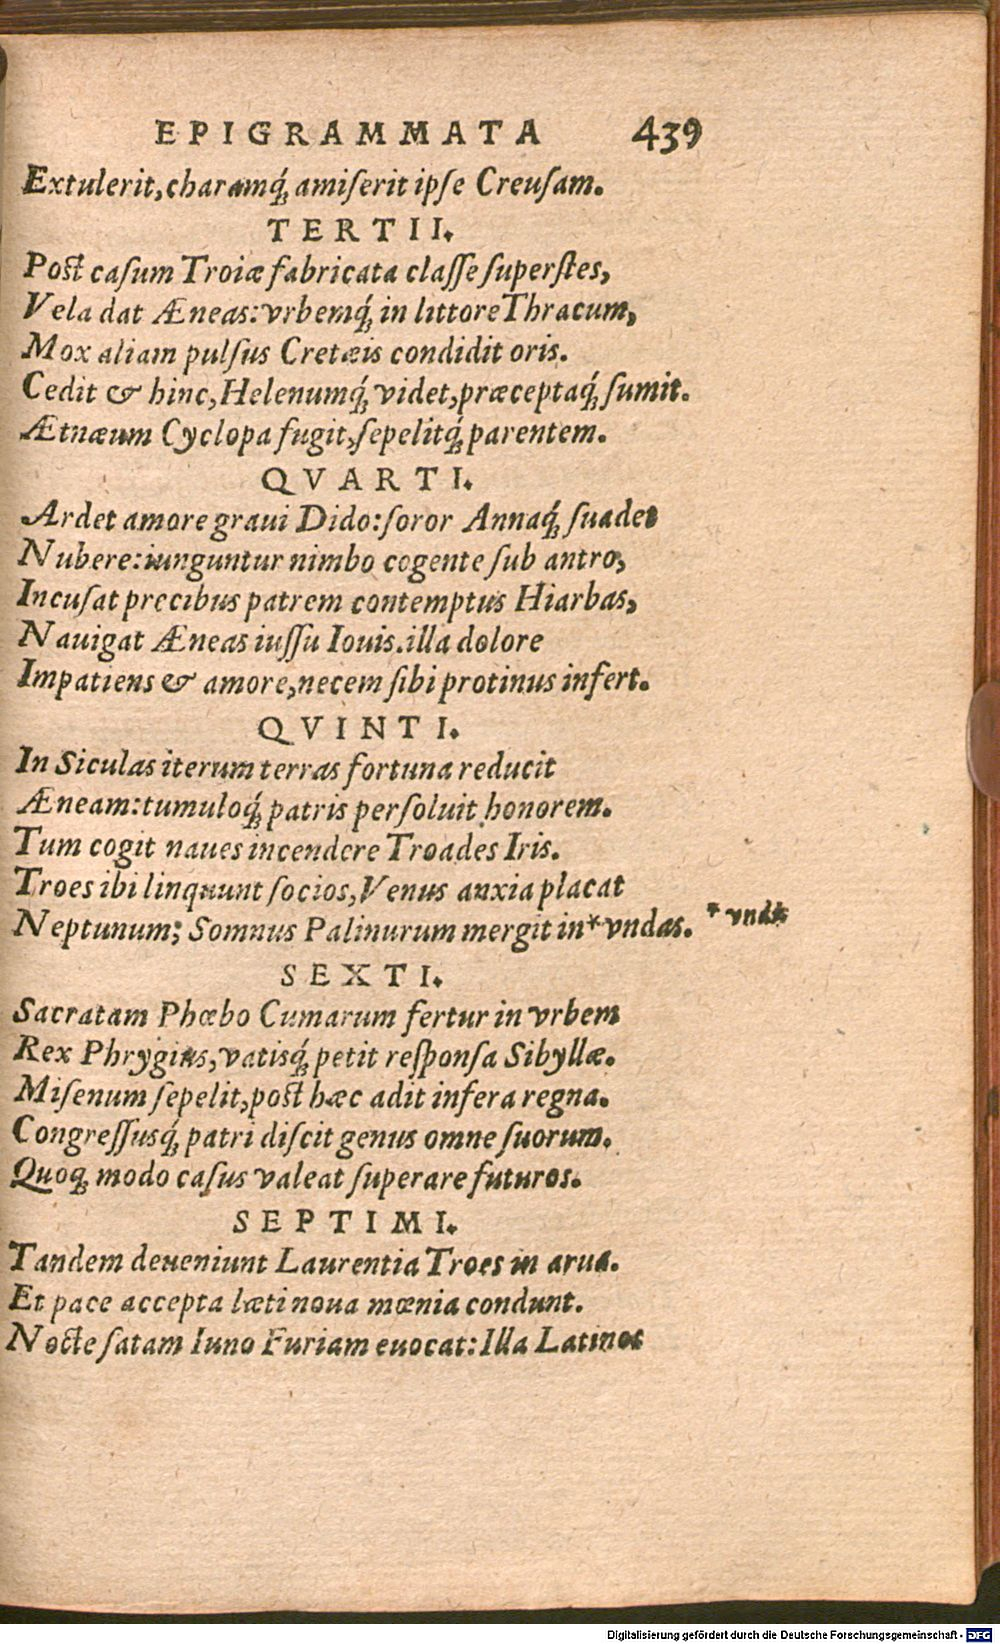 EPIGRAMMATA 439
Extulerit, charamq́; amiſerit ipſe Creuſam.
TERTII.
Poſt caſum Troiæ fabricata claſſe ſuperſtes,
Vela dat Æneas: vrbemq́; in littore Thracum,
Mox aliam pulſus Cretæis condidit oris.
Cedit & hinc, Helenumq́; videt, præceptaq́; ſumit.
Ætnæum Cyclopa fugit, ſepelitq́; parentem.
QVARTI.
Ardet amore graui Dido: ſoror Annaq́; ſuadet
Nubere: iunguntur nimbo cogente ſub antro,
Incuſat precibus patrem contemptus Hiarbas,
Nauigat Æneas iuſſu Iouis. illa dolore
Impatiens & amore, necem ſibi protinus infert.
QVINTI.
In Siculas iterum terras fortuna reducit
Æneam: tumuloq́; patris perſoluit honorem.
Tum cogit naues incendere Troades Iris.
Troes ibi linquunt ſocios, Venus anxia placat
Neptunum; Somnus Palinurum mergit in * vndas. * vndis
SEXTI.
Sacratam Phœbo Cumarum fertur in vrbem
Rex Phrygius, vatisq́; petit reſponſa Sibyllæ.
Miſenum ſepelit, poſt hæc adit infera regna.
Congreſſusq́; patri diſcit genus omne ſuorum.
Quoq; modo caſus valeat ſuperare futuros.
SEPTIMI.
Tandem deueniunt Laurentia Troes in arua.
Et pace accepta læti noua mœnia condunt.
Nocte ſatam Iuno Furiam euocat: Illa Latinos
Digitalisierung gefördert durch die Deutsche Forschungsgemeinschaft - DFG